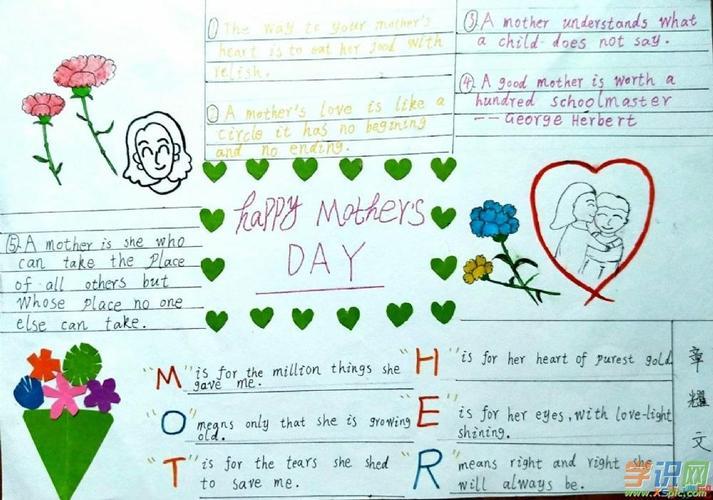 ① The way to your mother's
heart is to eat her food with
relish.
② A mother's love is like a
circle it has no begining
and no ending.
③ A mother understands what
a child does not say.
④ A good mother is worth a
hundred schoolmaster
-- George Herbert
happy Mothers
DAY
⑤ A mother is she who
can take the place
of all others but
whose place no one
else can take.
"M" is for the million things she
gave me.
"O" means only that she is growing
old.
"T" is for the tears she shed
to save me.
"H" is for her heart of purest gold
"E" is for her eyes, with love-light
shining.
"R" means right and right she
will always be.
章耀文
学识网
www.xspic.com